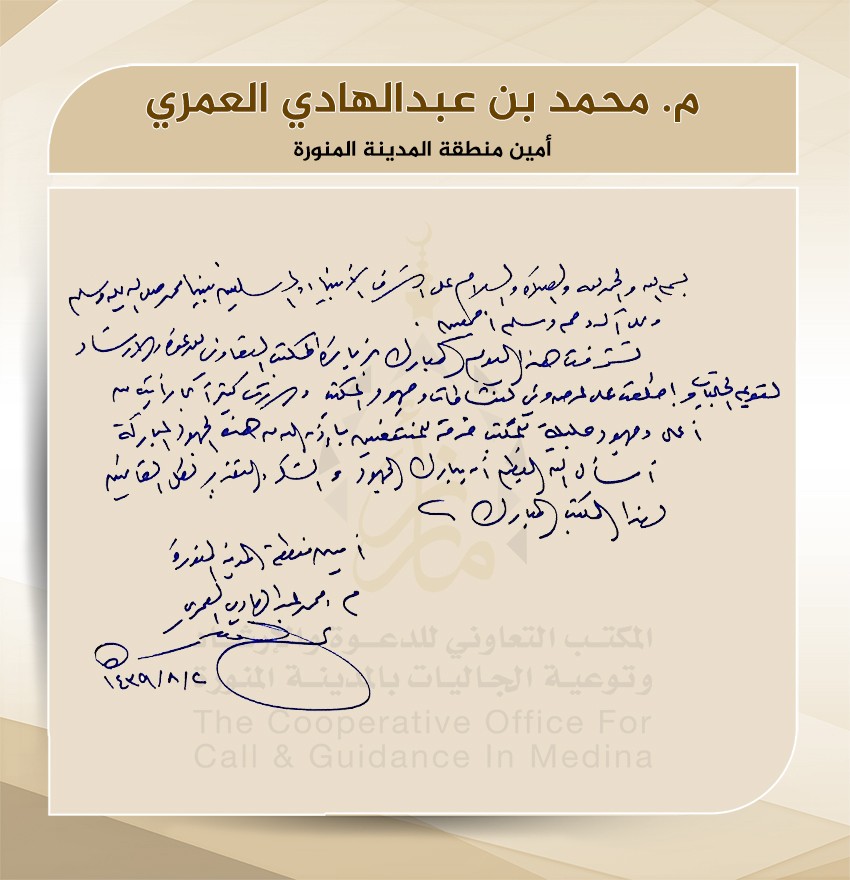 م. محمد بن عبدالهادي العمري
أمين منطقة المدينة المنورة
بسم الله والحمد لله والصلاة والسلام على اشرف الأنبياء والمرسلين نبينا محمد صلى الله عليه وسلم
وعلى آله وصحبه وسلم اجمعين
تشرفت هذا اليوم المبارك بزيارة المكتب التعاوني للدعوة والارشاد
الجاليات واطلعت على وجهود المكتب وسررت كثيراً بما رأيت من
أعمال وجهود جليلة للمكتب بإذن الله من هذه الجهود المباركة
أسأل الله العظيم أن يبارك الجهود والشكر والتقدير لكل القائمين
لهذا المكتب المبارك
أمين منطقة المدينة المنورة
م. محمد عبدالهادي العمري
١٤٣٩/٨/٢
المكتب التعاوني للدعوة والإرشاد
وتوعية الجاليات بالمدينة المنورة
The Cooperative Office For
Call & Guidance In Medina